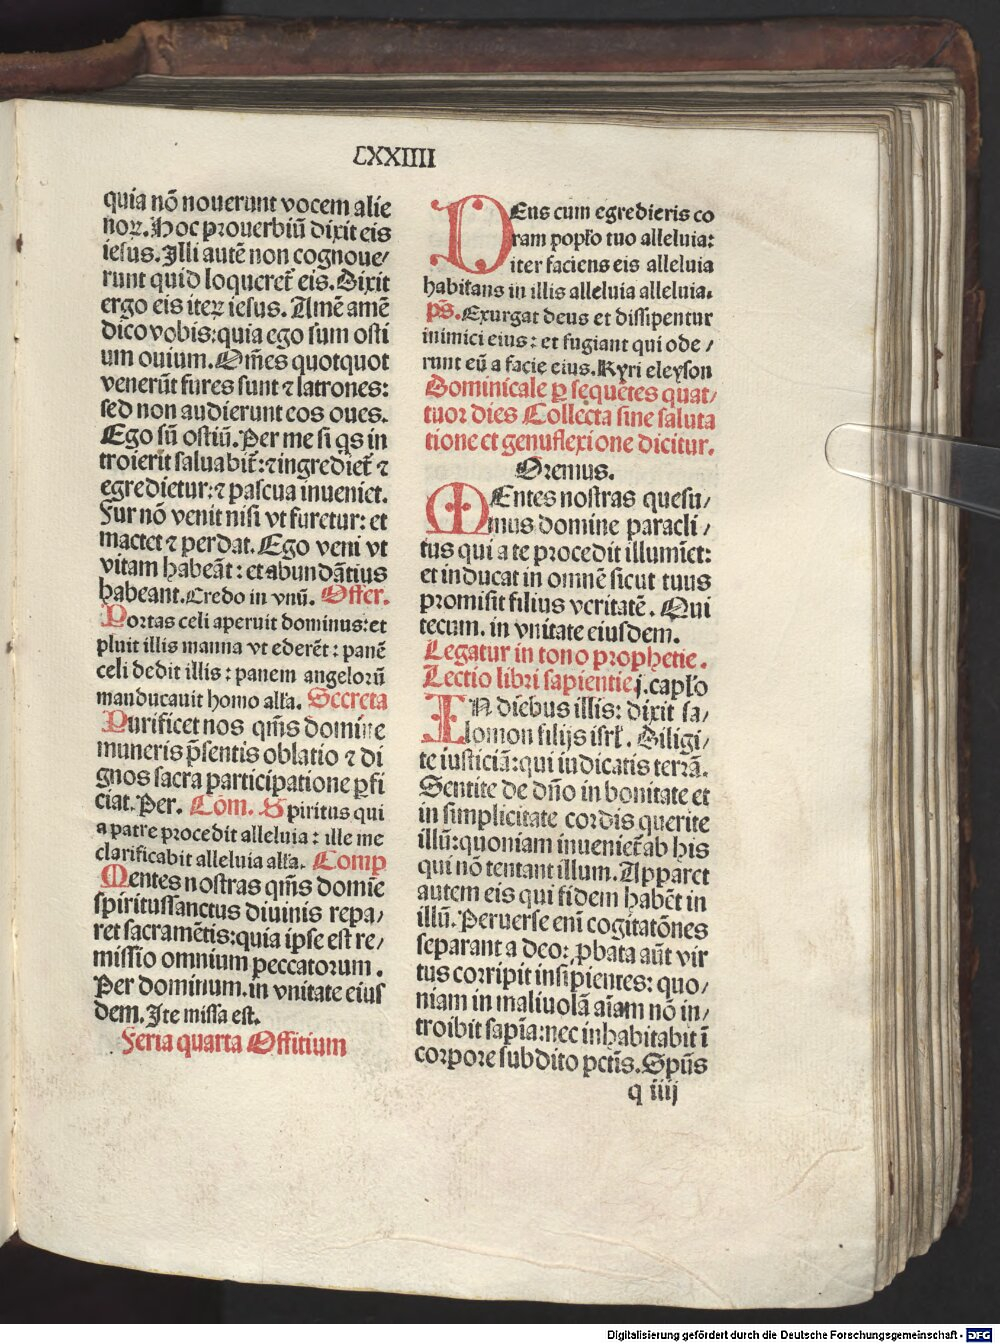 CXXIIII
quia nō nouerunt vocem alie
noꝝ. Hoc prouerbiū dixit eis
iesus. Illi autē non cognoue/
runt quid loqueret᷑ eis. Dixit
ergo eis iteꝝ iesus. Amē amē
dico vobis: quia ego sum osti
um ouium. Om̄es quotquot
venerūt fures sunt ⁊ latrones:
sed non audierunt eos oues.
Ego sū ostiū. Per me si qs in
troierit saluabit᷑: ⁊ ingrediet᷑ ⁊
egredietur: ⁊ pascua inueniet.
Fur nō venit nisi vt furetur: et
mactet ⁊ perdat. Ego veni vt
vitam habeāt: et abundātius
habeant. Credo in vnū. Offer.
Portas celi aperuit dominus: et
pluit illis manna vt ederēt: panē
celi dedit illis: panem angelorū
manducauit homo alła. Secreta
Purificet nos qm̄s domine
muneris p̄sentis oblatio ⁊ di
gnos sacra participatione ꝑfi
ciat. Per. Cōm. Spiritus qui
a patre procedit alleluia: ille me
clarificabit alleluia alła. Comp
Mentes nostras qm̄s domīe
spiritussanctus diuinis repa/
ret sacramētis: quia ipse est re/
missio omnium peccatorum.
Per dominum. in vnitate eius
dem. Ite missa est.
Feria quarta Offitium
DEus cum egredieris co
ram popło tuo alleluia:
iter faciens eis alleluia
habitans in illis alleluia alleluia.
ps̄. Exurgat deus et dissipentur
inimici eius: et fugiant qui ode/
runt eū a facie eius. Kyri eleyson
Dominicale ꝑ sequētes quat/
tuor dies Collecta sine saluta
tione et genuflexione dicitur.
Oremus.
MEntes nostras quesu/
mus domine paracli/
tus qui a te procedit illumīet:
et inducat in omnē sicut tuus
promisit filius veritatē. Qui
tecum. in vnitate eiusdem.
Legatur in tono prophetie.
Lectio libri sapientie. j. capło
IN diebus illis: dixit sa/
lomon filijs isrł. Diligi/
te iusticiā: qui iudicatis terrā.
Sentite de dn̄o in bonitate et
in simplicitate cordis querite
illū: quoniam inueniet᷑ ab his
qui nō tentant illum. Apparet
autem eis qui fidem habēt in
illū. Peruerse enī cogitatōnes
separant a deo: ꝓbata aūt vir
tus corripit insipientes: quo/
niam in maliuolā aīam nō in/
troibit sapīa: nec inhabitabit ī
corpore subdito pctīs. Spūs
q iiij
Digitalisierung gefördert durch die Deutsche Forschungsgemeinschaft - DFG